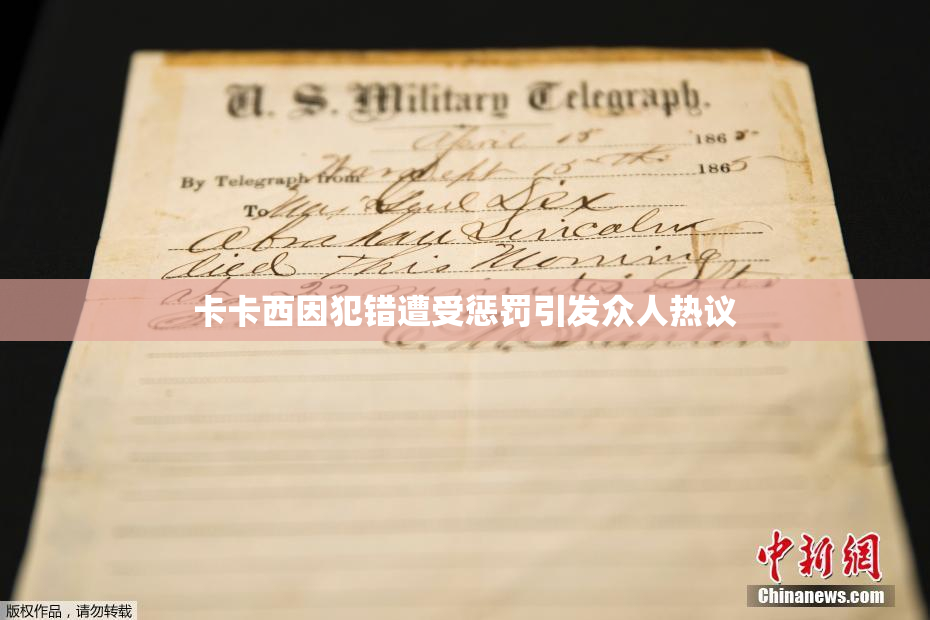 U. S. Military Telegraph.
April 15 1865
By Telegraph from War Dept 15th 1865
To Maj Genl Dix
Abraham Lincoln
died This Morning
at 22 minutes after
卡卡西因犯错遭受惩罚引发众人热议
中新网
Chinanews.com
版权作品，请勿转载